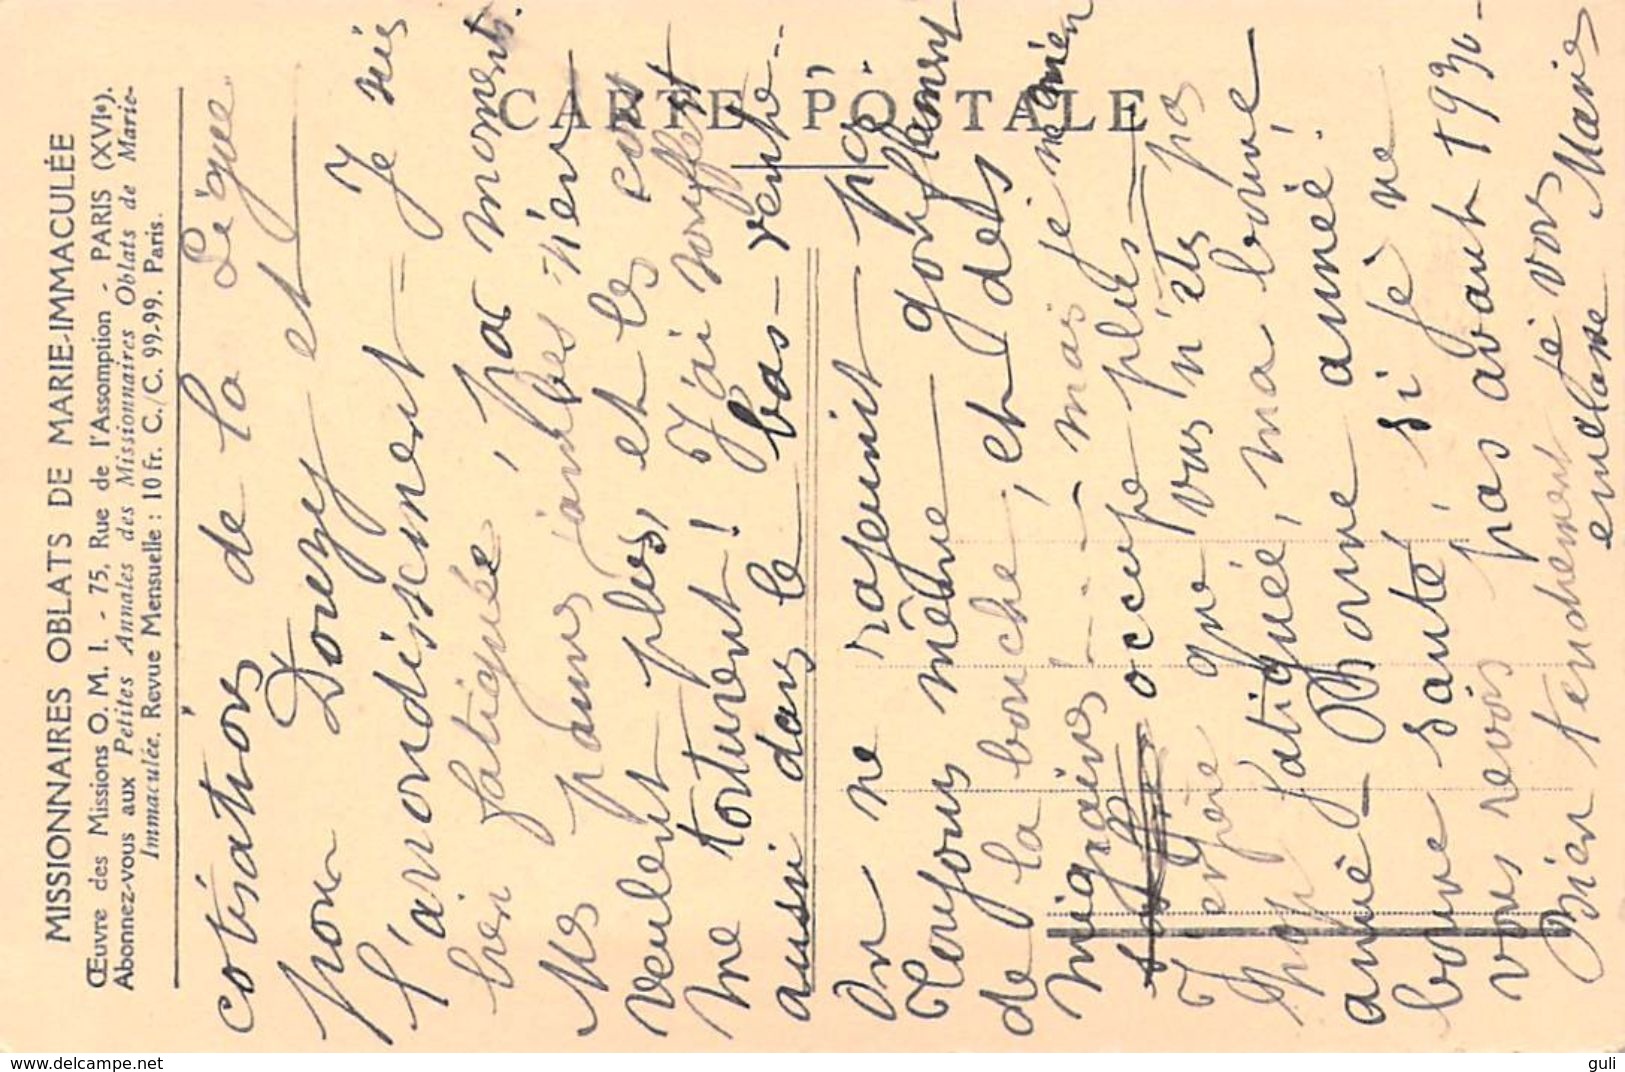 MISSIONNAIRES OBLATS DE MARIE-IMMACULÉE
Œuvre des Missions O. M. I. - 75, Rue de l'Assomption - PARIS (XVIe).
Abonnez-vous aux Petites Annales des Missionnaires Oblats de Marie-
Immaculée. Revue Mensuelle : 10 fr. C./C. 99-99. Paris.
CARTE POSTALE
cotisations de la Ligue
pour Douzy et
l'arrondissement - Je suis
bien fatiguée, par moments.
Mes pauvres jambes n'en
veulent plus, et les
me torturent! J'ai souffert
aussi dans le bas-ventre...
On ne rajeunit pas
Toujours même gonflement
de la bouche, et des
migraines mais je ne m'en
occupe plus -
J'espère que vous n'êtes pas
trop fatiguée, ma bonne
amie - Bonne année!
bonne santé, si je ne
vous revois pas avant 1930 -
Bien tendrement je vous
embrasse Marie
guli